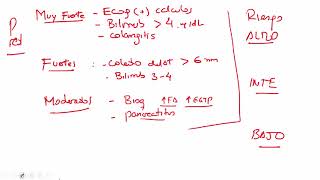 Pred
Muy Fuerte - Ecog (+) calculos
- Bilirrub > 4 mg/dL
- colangitis
Fuertes: - Coledo dilat > 6 mm
- Bilirrub 3-4
Moderados - Bioq ↑FA ↑GGTP
- pancreatitis
Riesgo
ALTO
INTE
BAJO